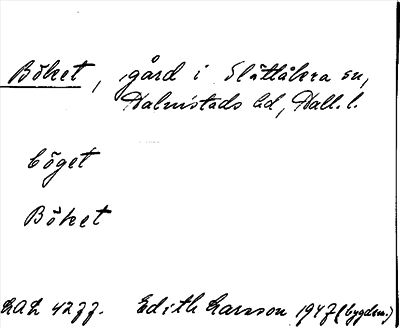 Böket, gård i Slättåkra sn,
Halmstads hd, Hall. l.
böget
Böket
LAL 4277. Edith Larsson 1947 (bygden.)